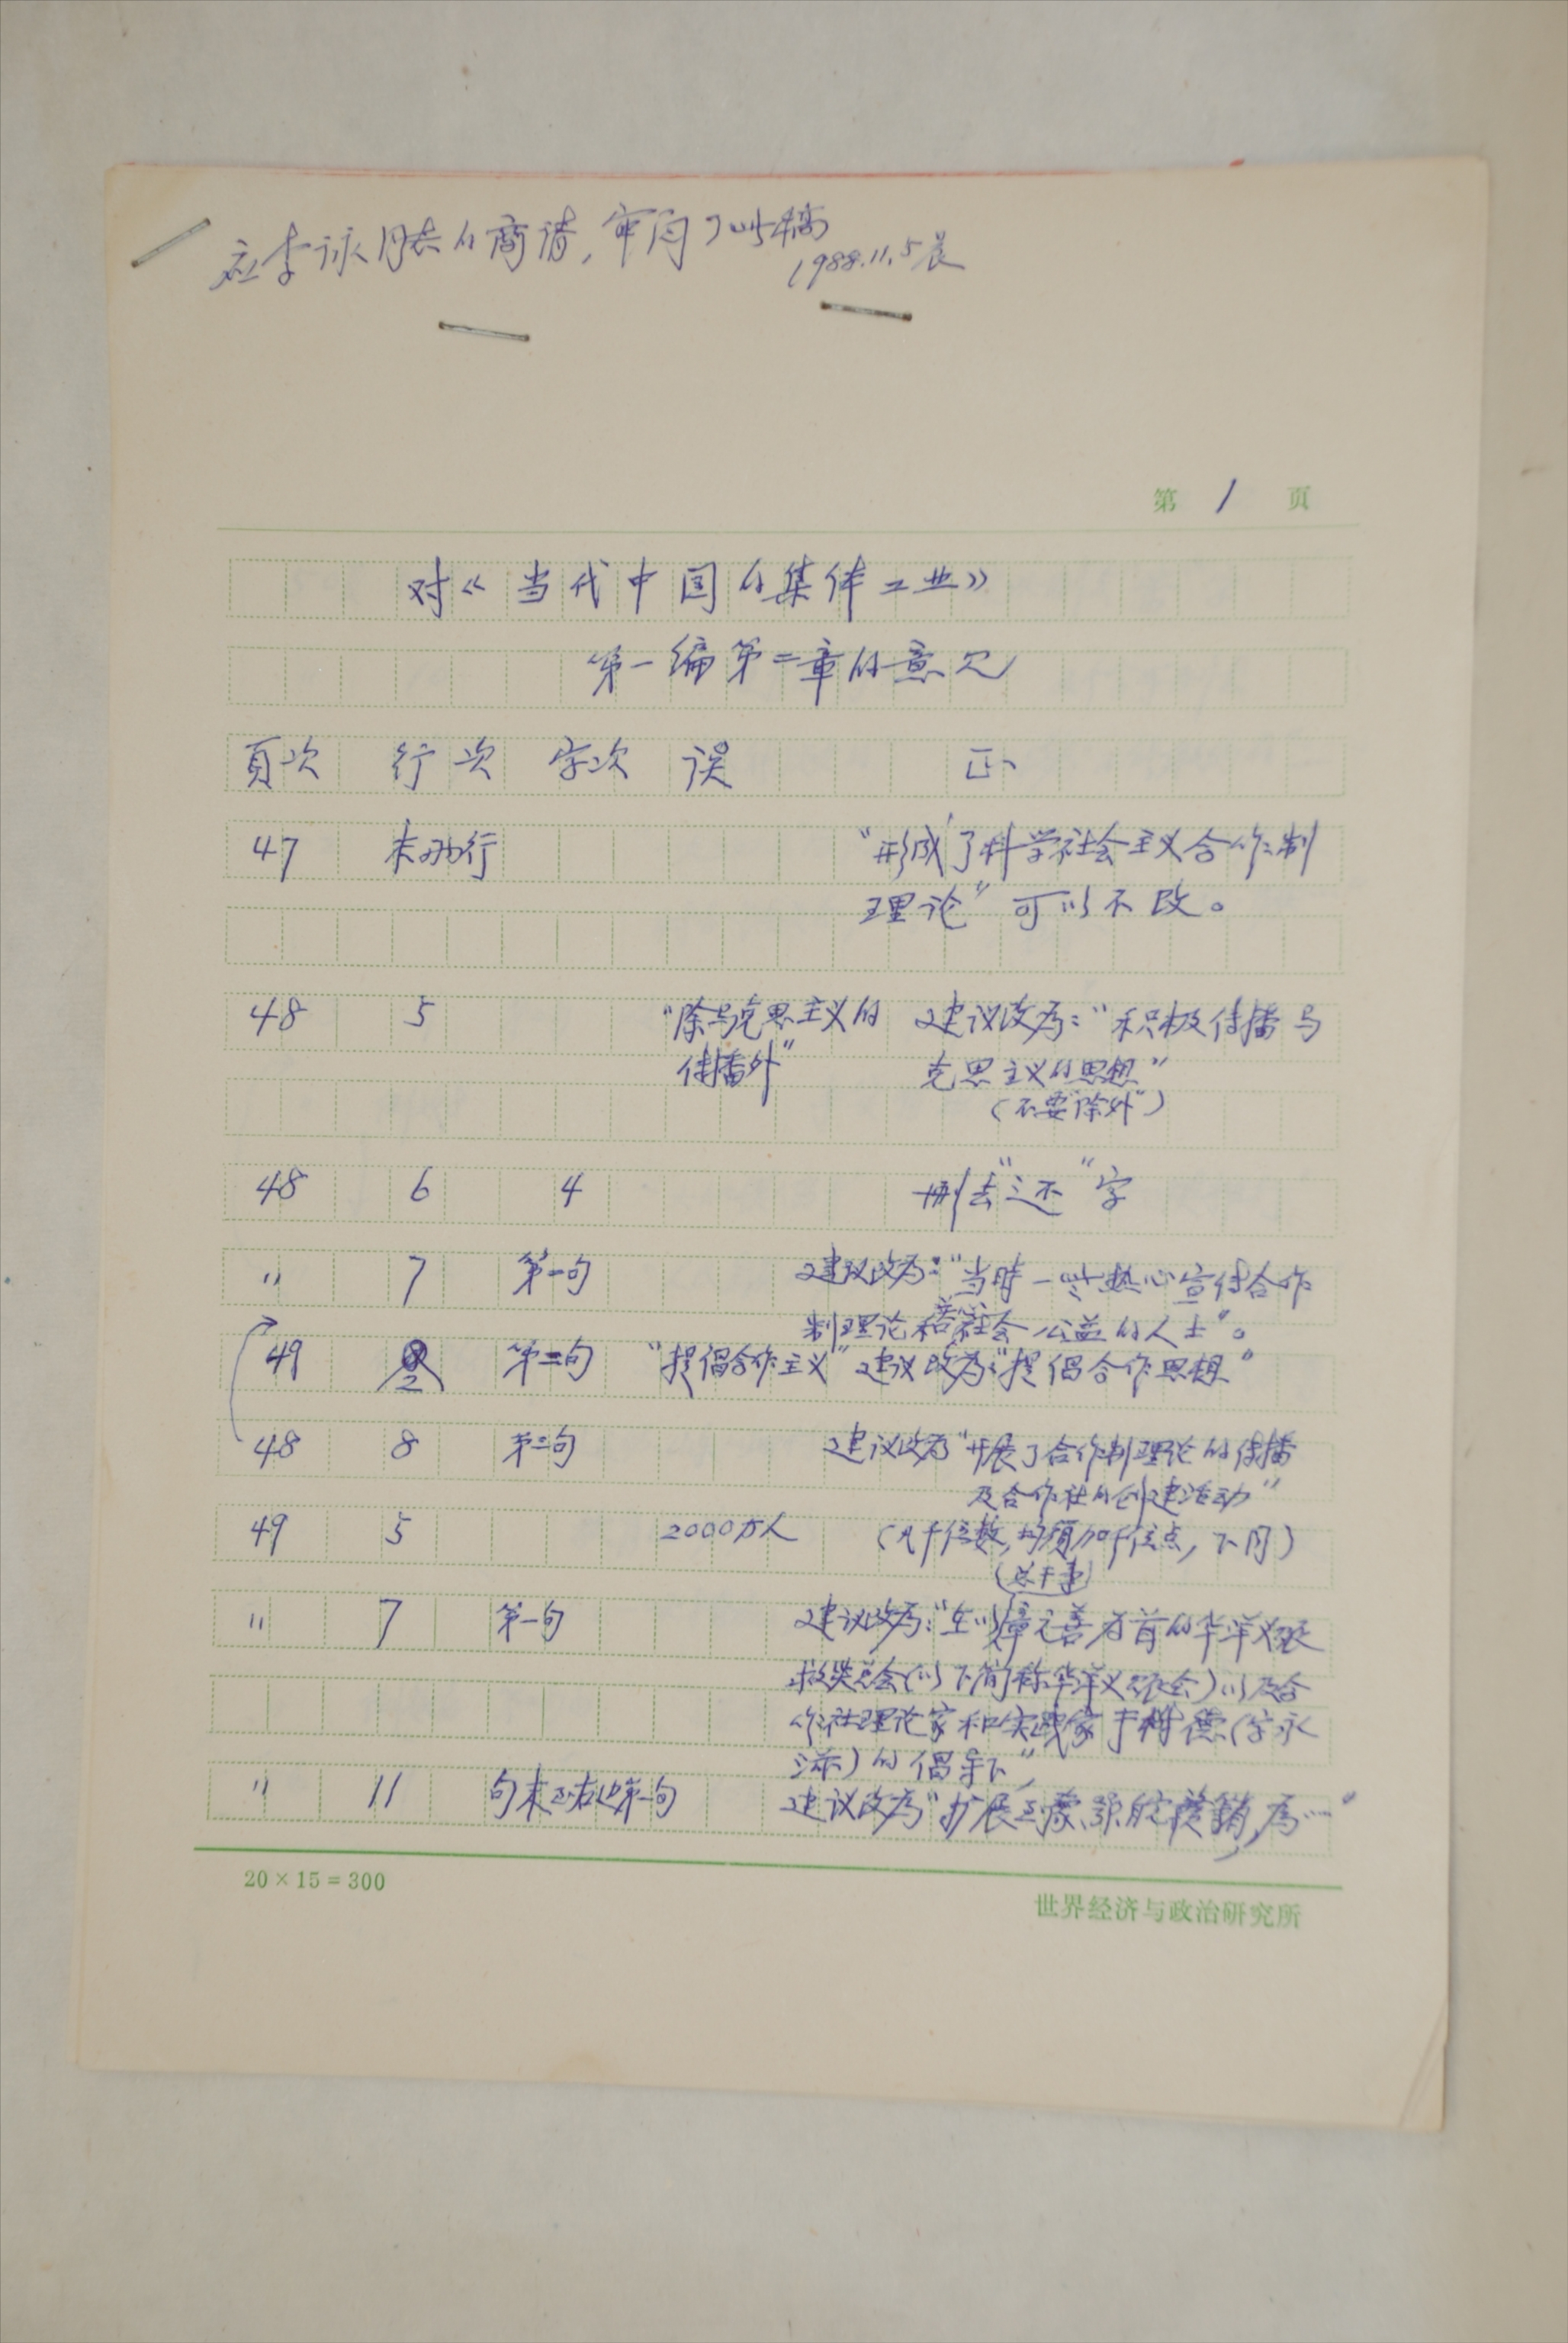 应李泳同志的商请，审阅了此稿
1988.11.5晨
第 1 页
对《当代中国的集体工业》
第一编第二章的意见
頁次 行次 字次 误 正
47 末两行 “形成了科学社会主义合作制
理论”可以不改。
48 5 “除马克思主义的 建议改为：“积极传播马
传播外” 克思主义的思想”
（不要“除外”）
48 6 4 删去“还”字
〃 7 第一句 建议改为：“当时一些热心宣传合作
制理论和社会公益的人士”。
49 2 第二句 “提倡合作主义” 建议改为：“提倡合作思想”
48 8 第二句 建议改为“开展了合作制理论的传播
及合作社的创建活动”
49 5 2000万人 （凡千位数，均须加千位点，下同）
（总干事）
〃 7 第一句 建议改为：“在以章元善为首的华洋义赈
救灾总会（以下简称华洋义赈会）以及合
作社理论家和实践家于树德（字永
滋）的倡导下”，
〃 11 句末至右边第一句 建议改为“扩展至豫、鄂、皖、赣、湘，为…”
20×15＝300
世界经济与政治研究所